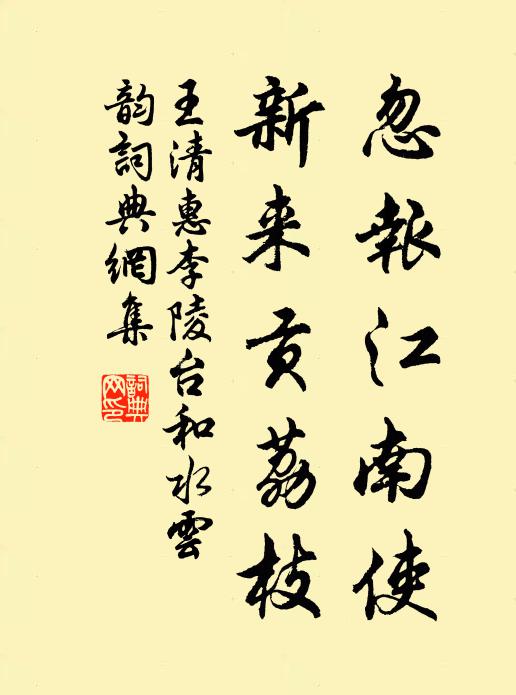 忽報江南使
新来貢荔枝
王清惠李陵台和水雲
韵詞典網集
詞典网印